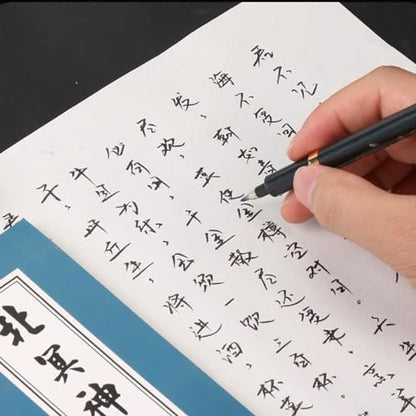 君不见
海不复回
发，朝如青
尽欢，莫使金樽空对月。天
必有用，千金散尽还复来，烹羊
牛且为乐，会须一饮三百杯。
子，丹丘生，将进酒，杯莫
北冥神